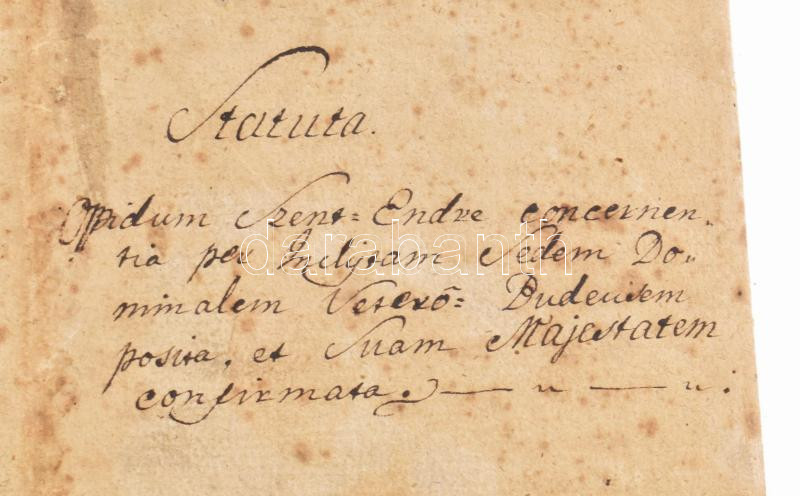 Statuta.
Oppidum Szent= Endre concernen„
tia per Inclytam Sedem Do„
minalem Veterō= Budensem
posita, et Suam Majestatem
confirmata.
darabanth